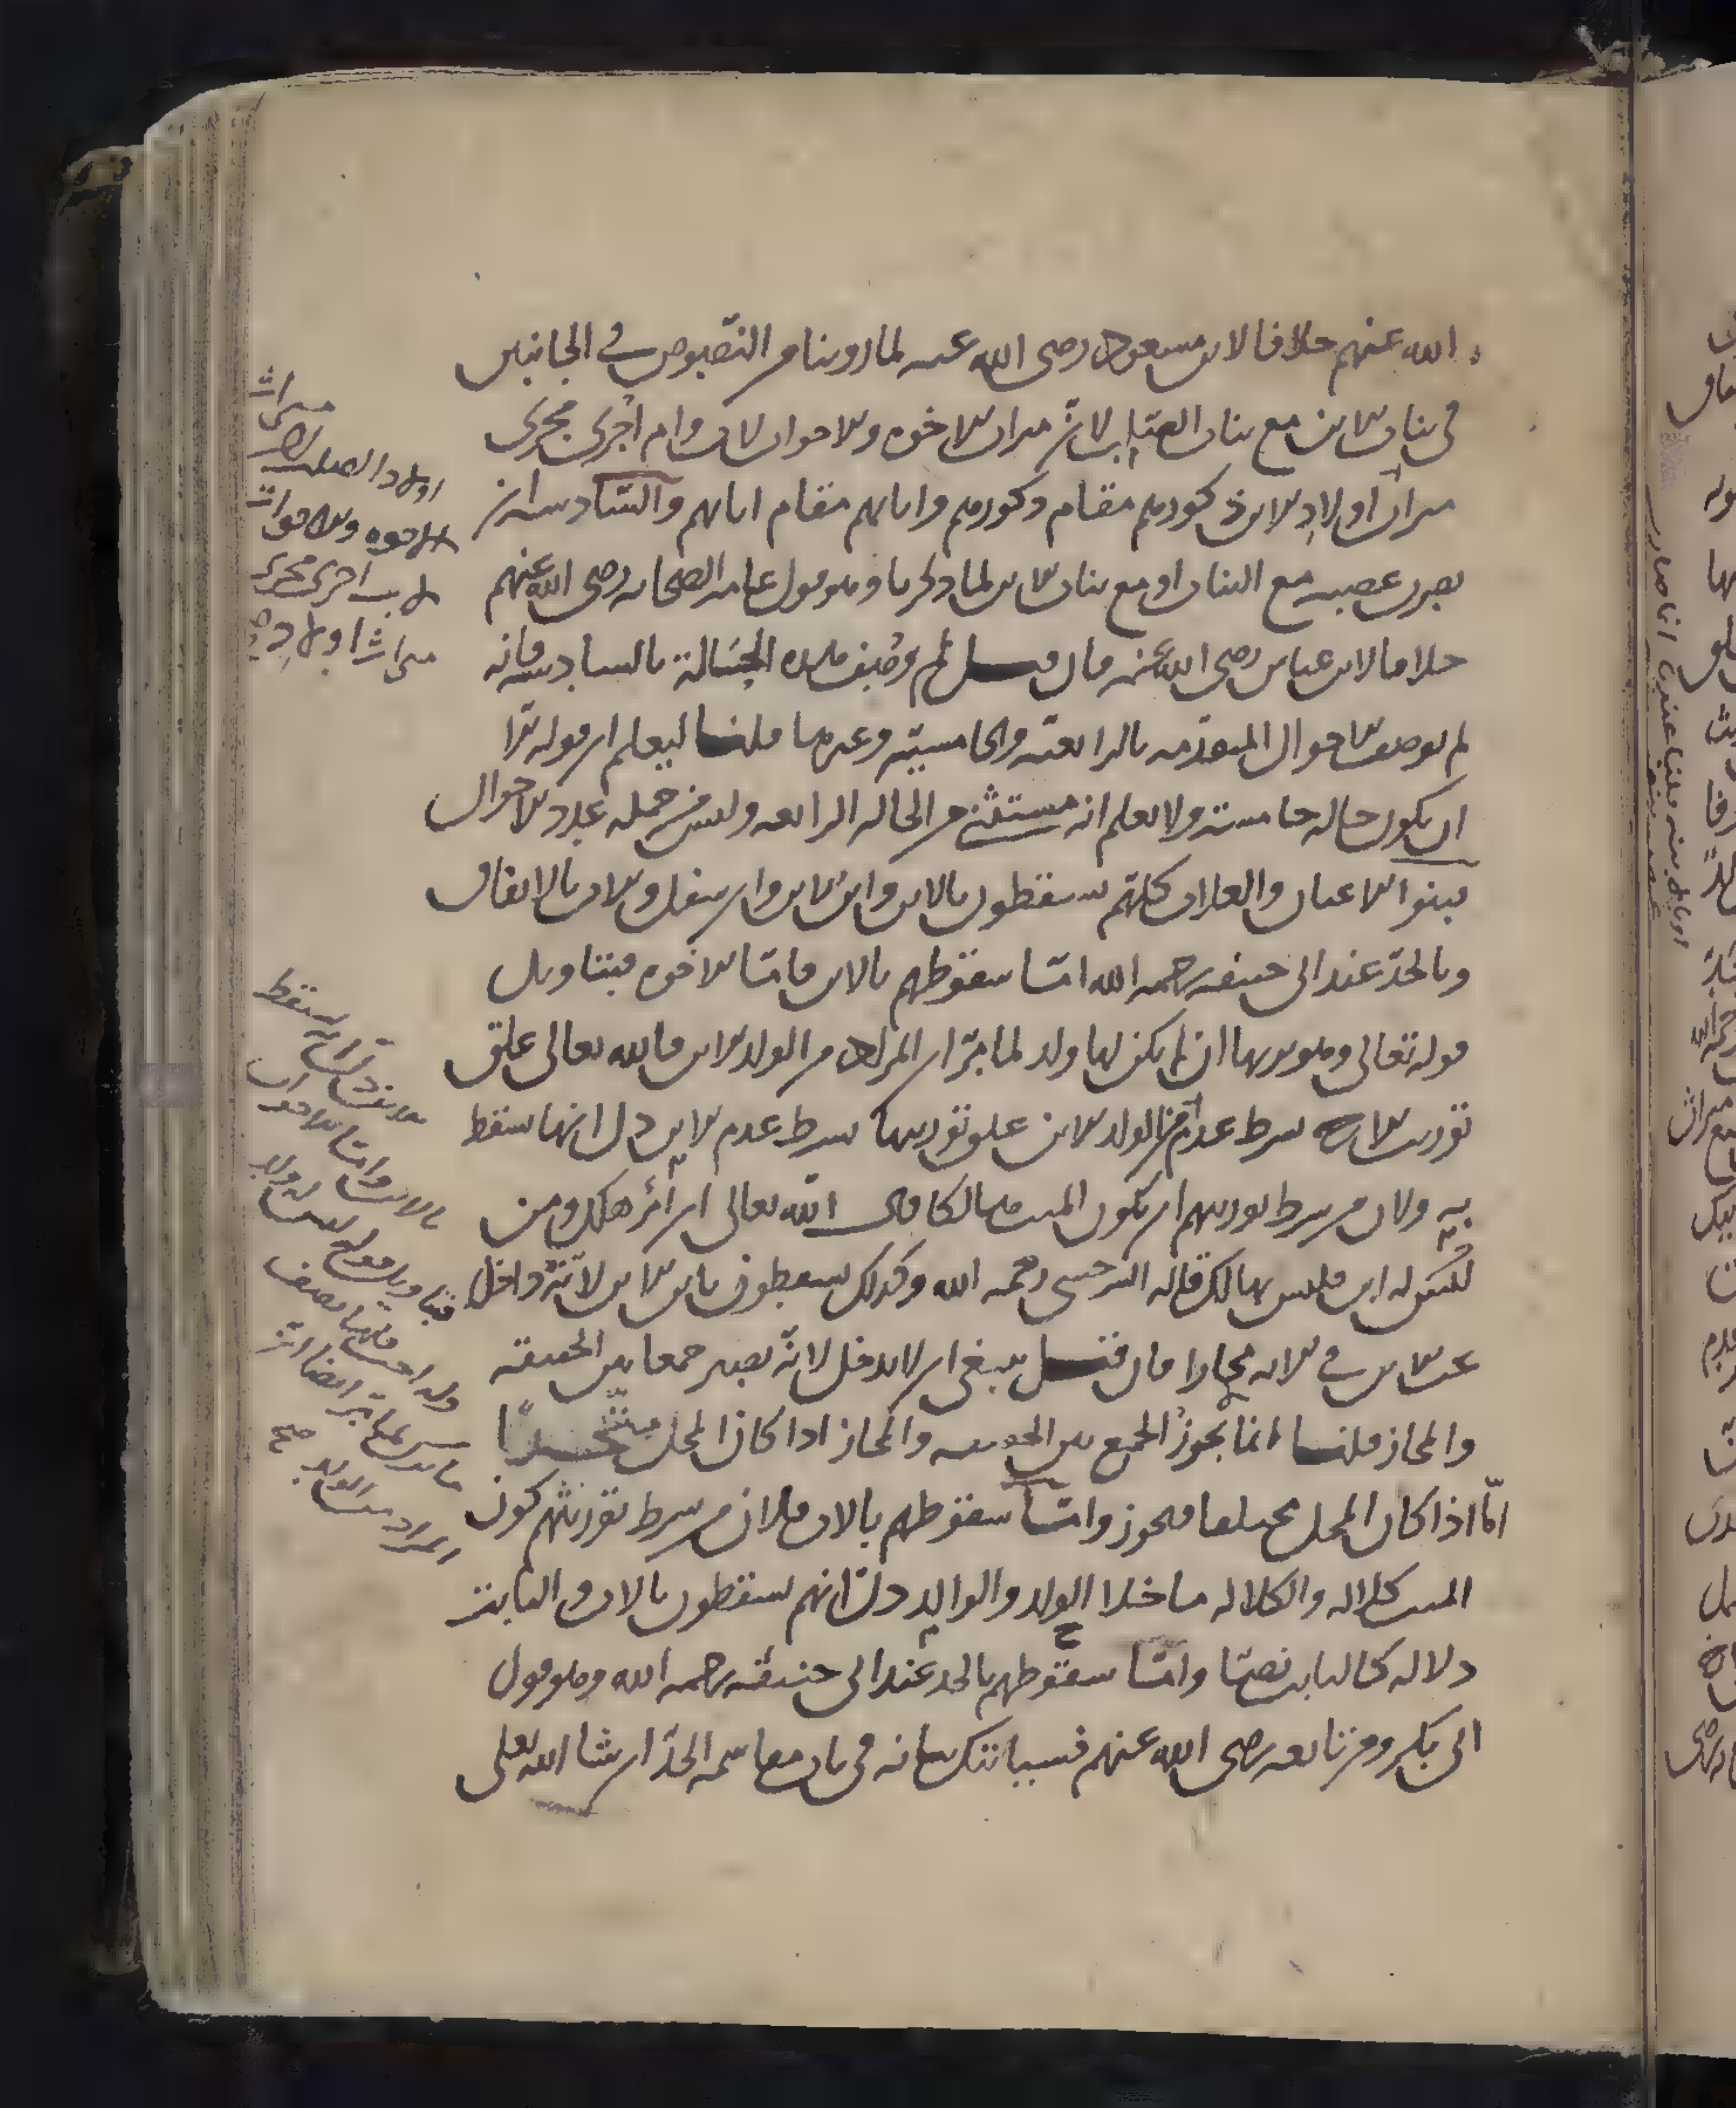 الله عنهم خلافا لابن مسعود رضى الله عنه لما روينا من النصوص فى الجانبين
فى بنات الابن مع بنات الصلب لان ميراث الاخوة والاخوات لاب وام اجرى مجرى
ميراث اولاد الابن ذكورهم مقام ذكورهم واناثهم مقام اناثهم والسادسة ان
يصرن عصبة مع البنات او مع بنات الابن لما ذكرنا وهو قول عامة الصحابة رضى الله عنهم
خلافا لابن عباس رضى الله عنه فان قيل لم وصف هذه الحالة بالسادسة فانه
لم يوصف الاحوال المتقدمة بالرابعة والخامسة وغيرها قلنا ليعلم ان قوله الا
ان يكون حالة خامسة ولا يعلم انه مستثنى من الحالة الرابعة وليس من جملة عدد الاحوال
بنوا الاعيان والعلات كلهم يسقطون بالابن وابن الابن وان سفل والاب بالاتفاق
وبالجد عند ابى حنيفة رحمه الله اما سقوطهم بالابن فاما الاخوة فبتاويل
قوله تعالى وهو يرثها ان لم يكن لها ولد لما مر ان المراد من الولد الابن فالله تعالى علق
توريث الاخ بشرط عدم الولد الابن علق توريثها بشرط عدم الابن دل انها سقط
به ولان من شرط توريثهم ان يكون الميت هالكا قال الله تعالى ان امرؤ هلك ومن
يكن له ابن فليس بهالك قاله السرخسى رحمه الله وكذلك يسقطون بابن الابن لانه داخل
تحت الابن فى الاية مجازا فان قيل ينبغى ان لا يدخل لانه يصير جمعا بين الحقيقة
والمجاز قلنا انما يجوز الجمع بين الحقيقة والمجاز اذا كان المحل متحدا
اما اذا كان المحل مختلفا فيجوز واما سقوطهم بالاب فلان من شرط توريثهم كون
الميت كلالة والكلالة ما خلا الولد والوالد دل انهم يسقطون بالاب والثابت
دلالة كالثابت نصا واما سقوطهم بالجد عند ابى حنيفة رحمه الله وهو قول
ابى بكر ومن تابعه رضى الله عنهم فسياتيك بيانه فى باب مقاسمة الجد ان شا الله تعلى
ميراث
اولاد الصلب
الاخوة والاخوات
لاب اجرى مجرى
ميراث اولاد
بالاب واما الاخوات
فبتاويل قوله ليس له ولد
وله اخت فلها نصف
ما ترك لما مر ايضا ان
المراد من الولد صح